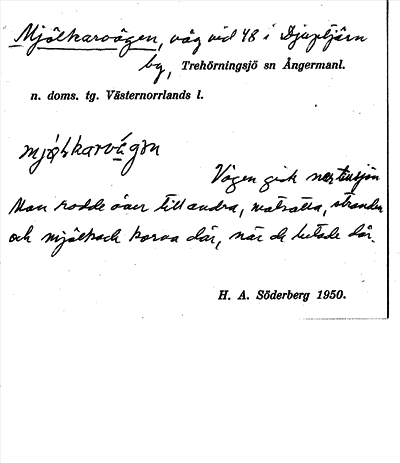 Mjölkarvägen, väg vid 48 i Djuptjärn
by, Trehörningsjö sn Ångermanl.
n. doms. tg. Västernorrlands l.
mjölkarvägen
Vägen gick ner till sjön
Man rodde över till andra, motsatta, stranden
och mjölkade korna där, när de betade där.
H. A. Söderberg 1950.